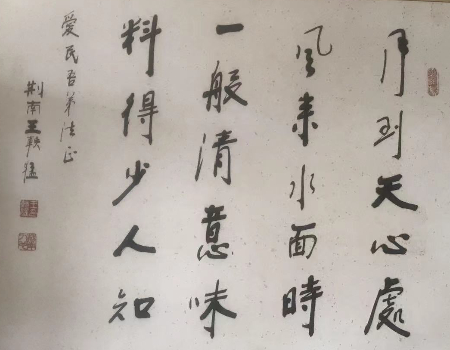 月到天心處
風來水面時
一般清意味
料得少人知
愛民吾弟法正
荆南王軼猛